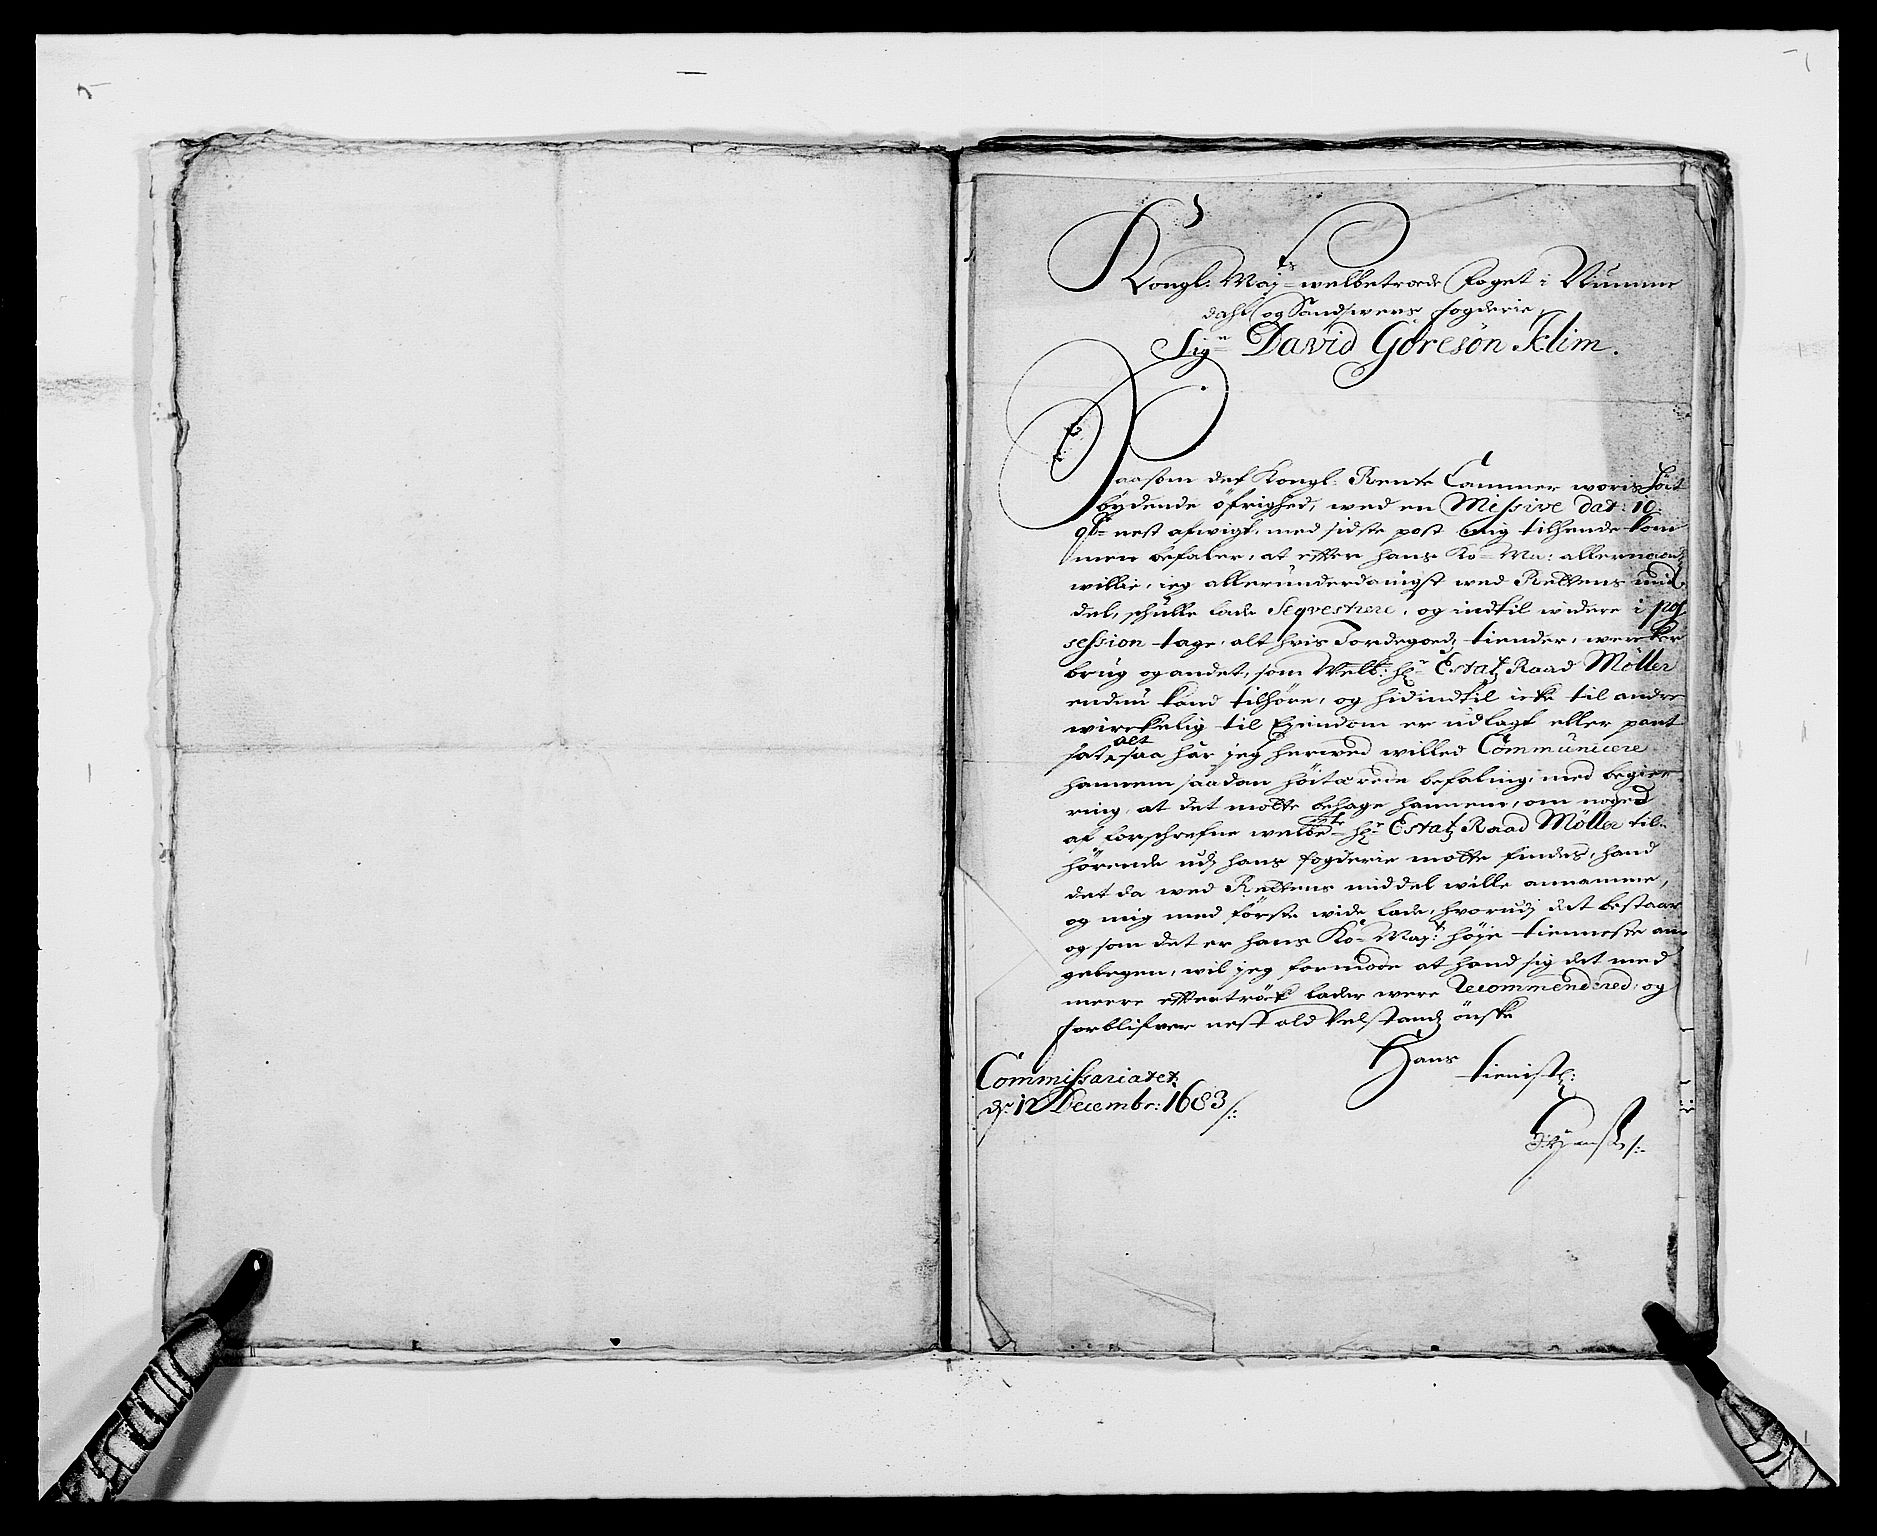 Kongl: Maj:ts welbetroede Foget i Numme
dahl og Sandswers fogderie,
Sigr David Göresön Klim.
Saasom det Kongl: Rente Cammer woris höit
bydende öfrighed, wed en Missive dat: 10.
9br nest afwigt, med sidste post mig tilhende kom
men befaler, at efter hans Ko: Ma: allernaadz
willie, ieg allerunderdanigst wed Rettens mid
del, schulle lade Seqvestrere, og indtil widere i pos
session tage, alt hvis Jordegodz, tiender, wercker
brug og andet, som Welb: hr Estatz Raad Möller
endnu kand tilhöre, og hidindtil icke til andre
wirckelig til Eyendom er udlagt eller pant
sat, alt saa har jeg herwed willed Communicere
hannem saadan höitærede befaling, med begier
ring, at det motte behage hannem, om noged
af forschrefne welbete hr Estatz Raad Möller til
hörende udj hans fogderie motte findes, hand
det da wed Rettens middel wille annamme,
og mig med förste wide lade, hvorudj det bestaar
og som det er hans Ko: Maj:ts höje tienneste an
gelegen, wil jeg formode at hand sig det med
meere eftertröck lader were Recommenderet, og
forblifver nest ald Velstandz önske
Hans
tienistl:
Commissariatet
dn 12 Decembr: 1683 /: